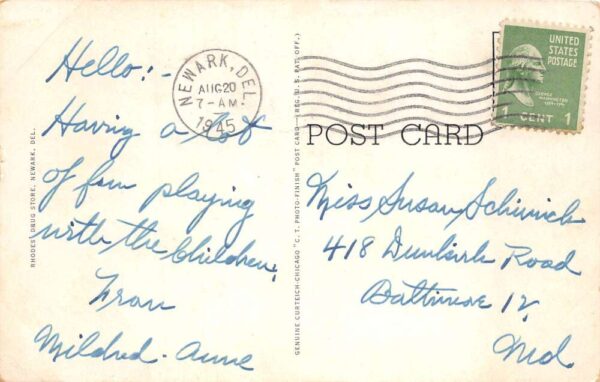 Hello:-
Having a lot
of fun playing
with the Children,
From
Mildred-Anne
RHODES' DRUG STORE, NEWARK, DEL.
NEWARK, DEL.
AUG 20
7-AM
1945
GENUINE CURTEICH-CHICAGO "C. T. PHOTO-FINISH" POST CARD (REG. U. S. PAT. OFF.)
POST CARD
UNITED
STATES
POSTAGE
GEORGE
WASHINGTON
CENT 1
Miss Susan
418 Dunkirk Road
Baltimore 12,
Md.